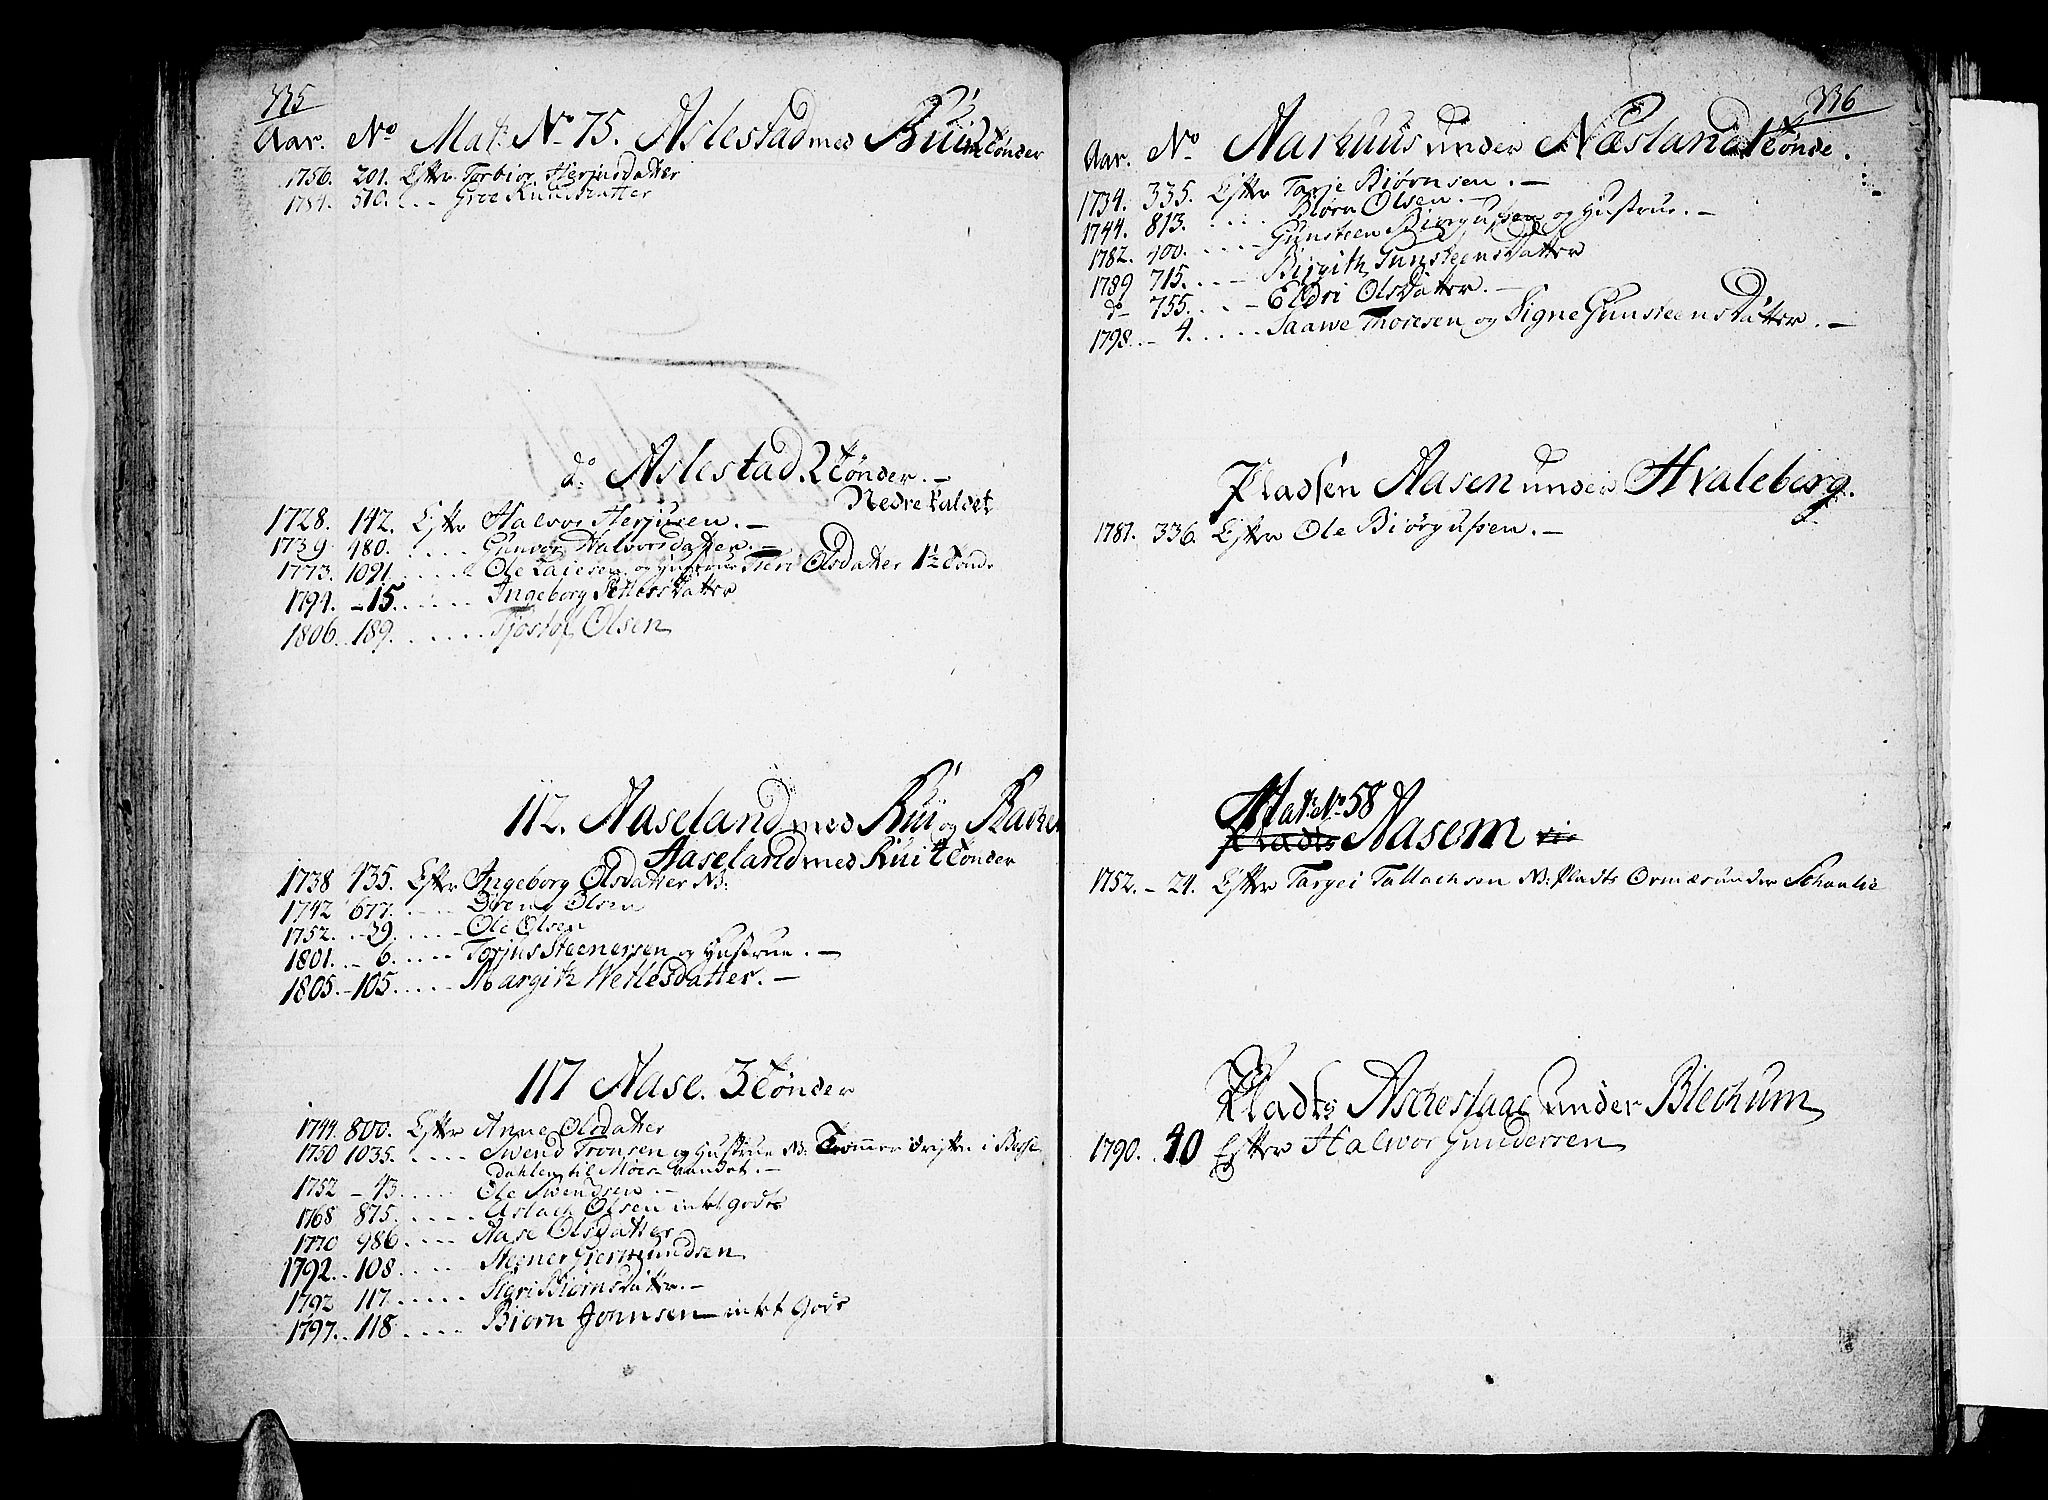 335
Aar. No Mat: No 75. Aslestad med Rui Tønder
1756. 201. Efter Torbior Herjusdatter
1784. 510. . . . Groe Knudsdatter
do Aslestad. 2 Tønder. —
Nedre kaldet
1728. 142. Efter Halvor Herjusen. —
1739. 480. . . . . Gunvor Halvorsdatter. —
1773. 1091. . . . . Ole Taiesen og Hustrue Olsdatter 1½ Tønde
1794. - 15. . . . . . Ingeborg
1806. 189. . . . . . Tjostol Olsen
112. Aaseland med Rui og Backen
Aaseland med Rui Tønder
1738 435. Efter Ingeborg Olsdatter NB:
1742 677. . . . . Dreng Olsen
1752. - 39. . . . . Ole Olsen
1801. - 6. . . . . Torjus Steenersen og Hustrue. —
1805. - 105. . . . . Margith Wetlesdatter. —
117 Aase. 3 Tønder
1744. 800. Efter Anne Olsdatter
1750 1035. . . . . Swend Tronsen og Hustrue NB: Tømmer driften i
Dahlen til vandet. —
1752 - 43. . . . . Ole Swendsen. —
1768 875. . . . . Aslach Olsen intet gods
1770 986. . . . Aase Olsdatter
1792. . 108. . . . . Steener Giermundsen
1792 117. . . . . Sigri Biørnsdatter. —
1797. . 118 . . . . Biørn Jonnsen intet Gods
336
Aar. No Aarhuus under Næsland 1 Tønde.
1734. 335. Efter Tarje Biørnsen. —
1744. 813. . . . . Biørn Olsen. —
1782. 400. . . . . - Gunsteen Biørgufsen og Hustrue. —
1789 715. . . . - Birgith Gunsteensdatter
do 755. . . . - Eldri Olsdatter. —
1798. . - 4. . . . . Saawe Thoresen og Signe Gunsteensdatter. —
Pladsen Aasen under Hvaleberg.
1781. 336. Efter Ole Biørgufsen. —
Mat: No 58
Pladts Aasem
1752. - 24. Efter Targei Tallachsen NB: Pladts Ormæs under Schanlie
Pladts Ascheslaae under Blechum
1790. . 40 Efter Halvor Gundersen